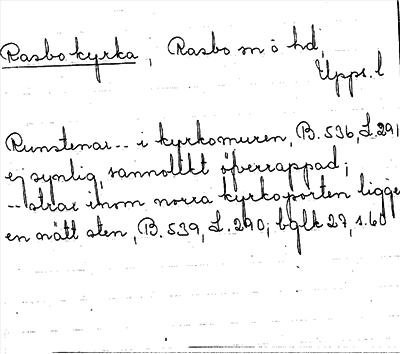 Rasbo kyrka, Rasbo sn o hd,
Upps. l
Runstenar -- i kyrkomuren, B. 536, L. 291
ej synlig, sannolikt öfverrappad;
-- strax inom norra kyrkoporten ligge
en nött sten, B. 539, L. 290; bglk 27, s. 60